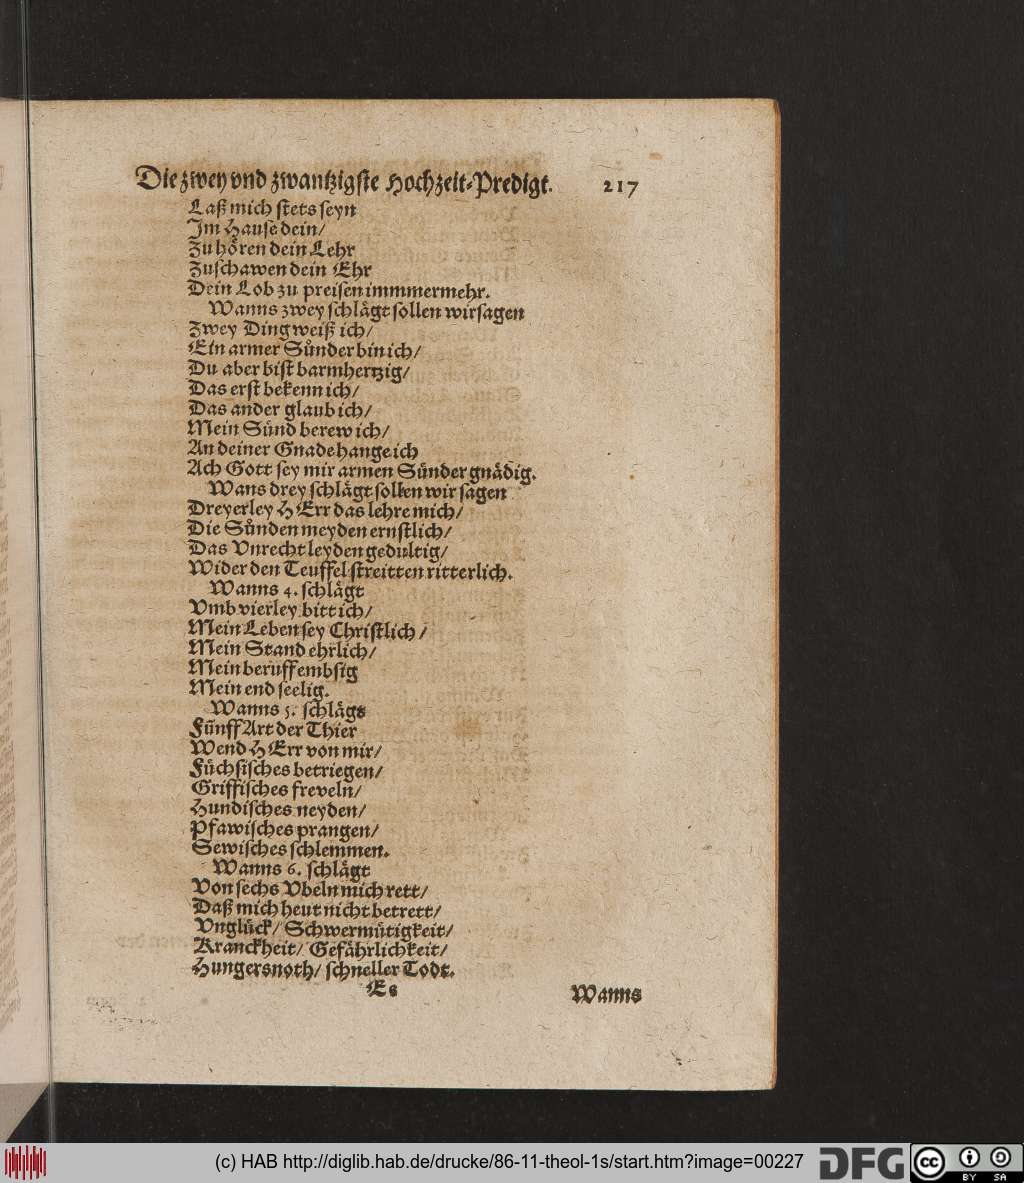 Die zwey vnd zwantzigste Hochzeit-Predigt. 217
Laß mich stets seyn
Im Hause dein/
Zu hören dein Lehr
Zuschawen dein Ehr
Dein Lob zu preisen immmermehr.
Wanns zwey schlägt sollen wir sagen
Zwey Ding weiß ich/
Ein armer Sünder bin ich/
Du aber bist barmhertzig/
Das erst bekenn ich/
Das ander glaub ich/
Mein Sünd berew ich/
An deiner Gnade hange ich
Ach Gott sey mir armen Sünder gnädig.
Wans drey schlägt sollen wir sagen
Dreyerley HErr das lehre mich/
Die Sünden meyden ernstlich/
Das Vnrecht leyden gedultig/
Wider den Teuffel streitten ritterlich.
Wanns 4. schlägt
Vmb vierley bitt ich/
Mein Leben sey Christlich/
Mein Stand ehrlich/
Mein beruff embsig
Mein end seelig.
Wanns 5. schlägt
Fünff Art der Thier
Wend HErr von mir/
Füchsisches betriegen/
Griffisches freveln/
Hundisches neyden/
Pfawisches prangen/
Sewisches schlemmen.
Wanns 6. schlägt
Von sechs Vbeln mich rett/
Daß mich heut nicht betrett/
Vnglück/ Schwermütigkeit/
Kranckheit/ Gefährlichkeit/
Hungersnoth/ schneller Todt.
Ee Wanns
(c) HAB http://diglib.hab.de/drucke/86-11-theol-1s/start.htm?image=00227 DFG cc BY SA